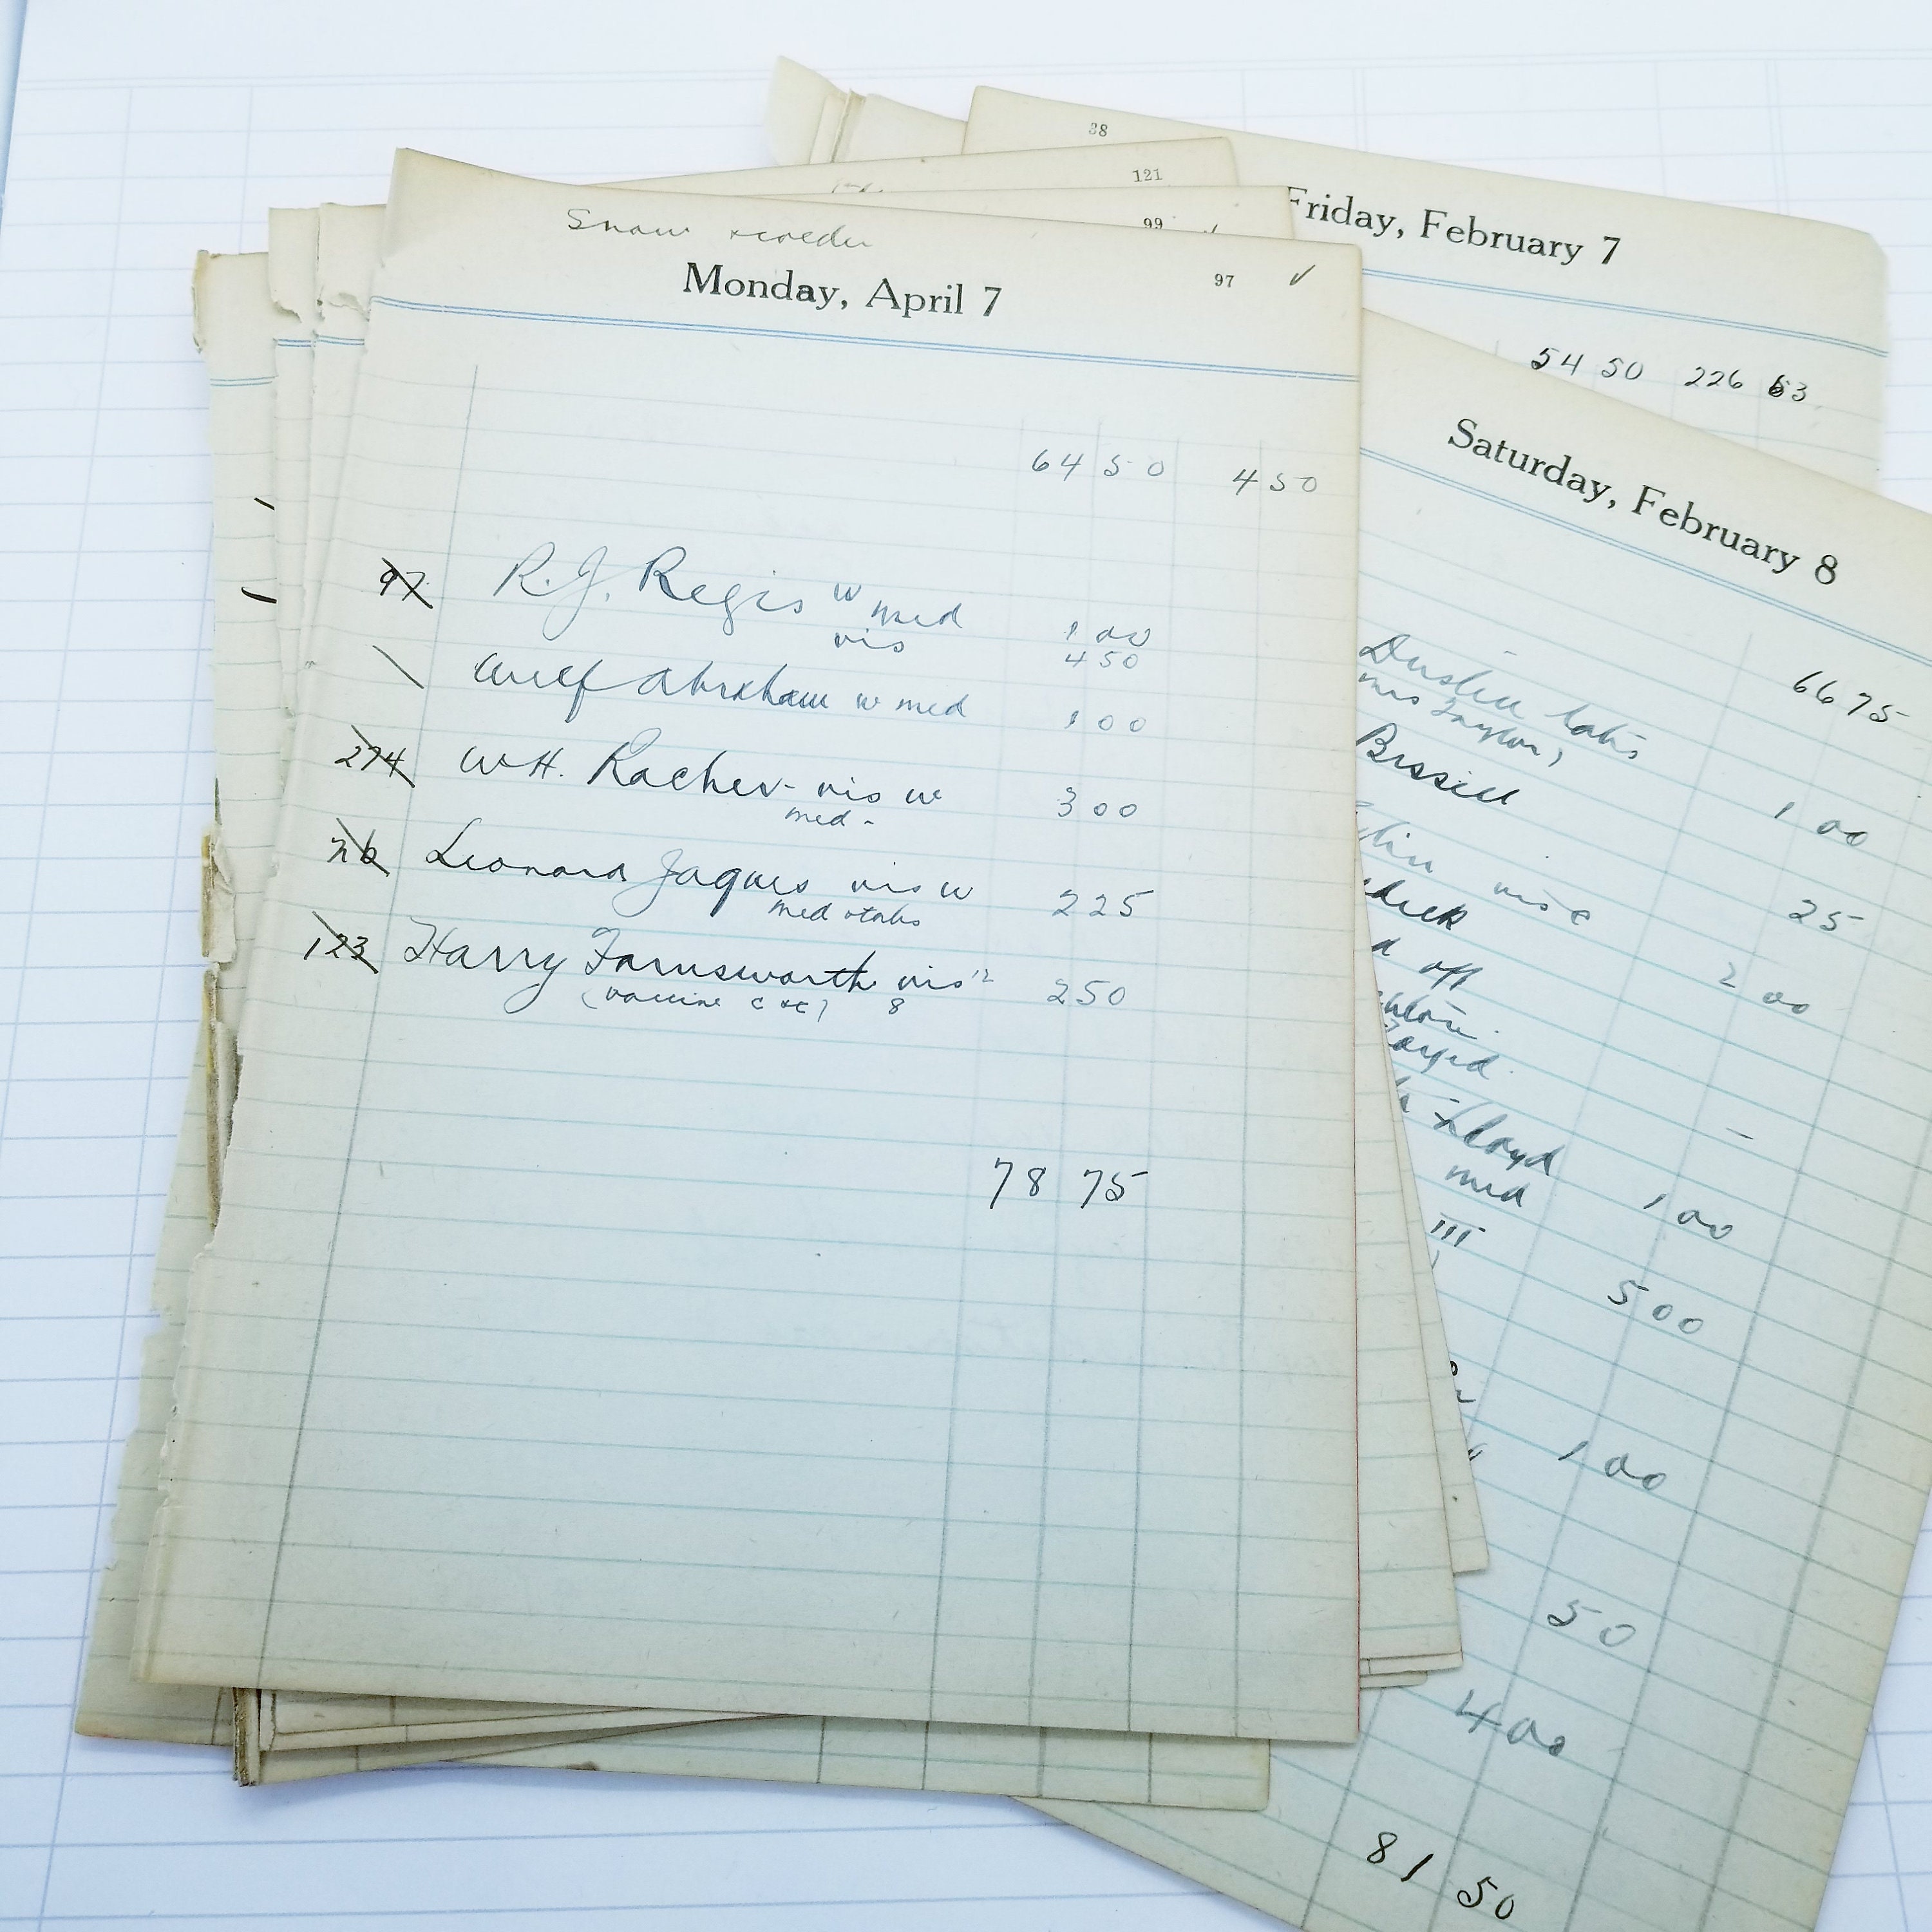 Snow & colder
Monday, April 7
97
64 50 4 50
97 R.J. Regis w med 1 00
vis 4 50
Abraham w med 1 00
274 W.H. Racher - vis w 3 00
med -
76 Leonard Jaques vis w 2 25
med & tabs
123 Harry Farnsworth vis 2 50
(vaccine c &c) 8
78 75
121
99
38
Friday, February 7
54 50 226 63
Saturday, February 8
66 75
tabs
Mrs Taylor)
1 00
Bissell
25
vis c
2 00
off
Lloyd
med
1 00
III
5 00
1 00
50
4 00
81 50